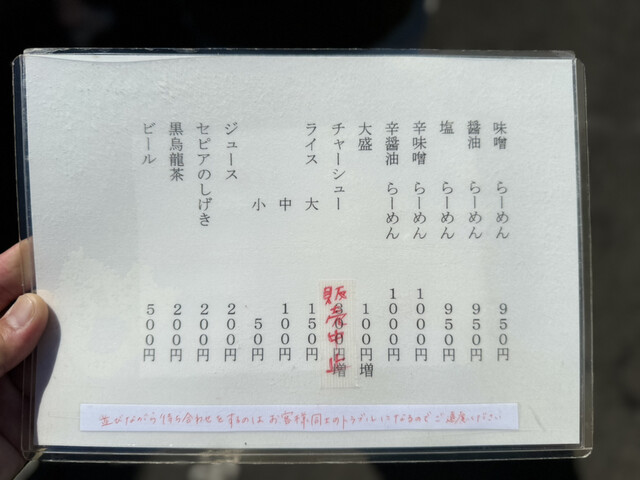 味噌 らーめん 950円
醤油 らーめん 950円
塩 らーめん 950円
辛味噌 らーめん 1000円
辛醤油 らーめん 1000円
大盛 100円増
チャーシュー 販売中止 円増
ライス 大 150円
中 100円
小 50円
ジュース 200円
セピアのしげき 200円
黒烏龍茶 200円
ビール 500円
並びながら待ち合わせをするのはお客様同士のトラブルになるのでご遠慮ください